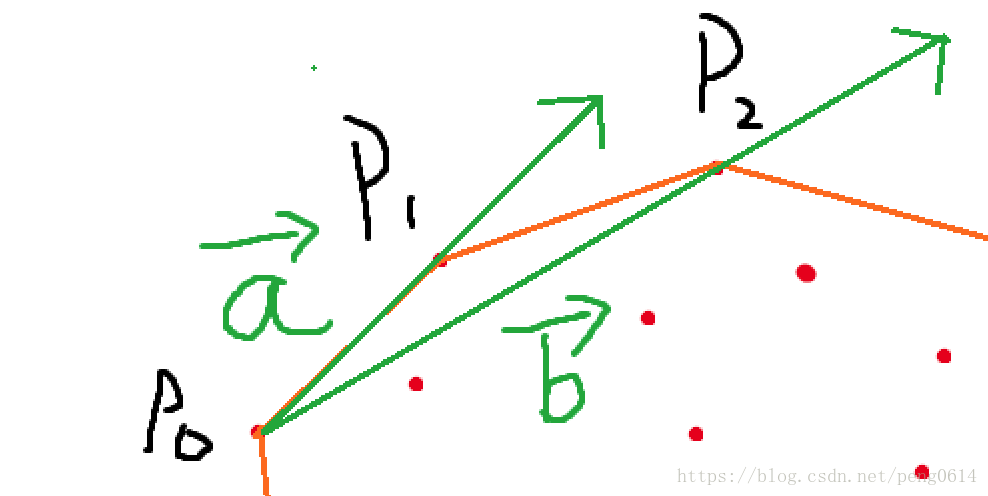 P₂
P₁
a⃗
b⃗
P₀
https://blog.csdn.net/peng0614